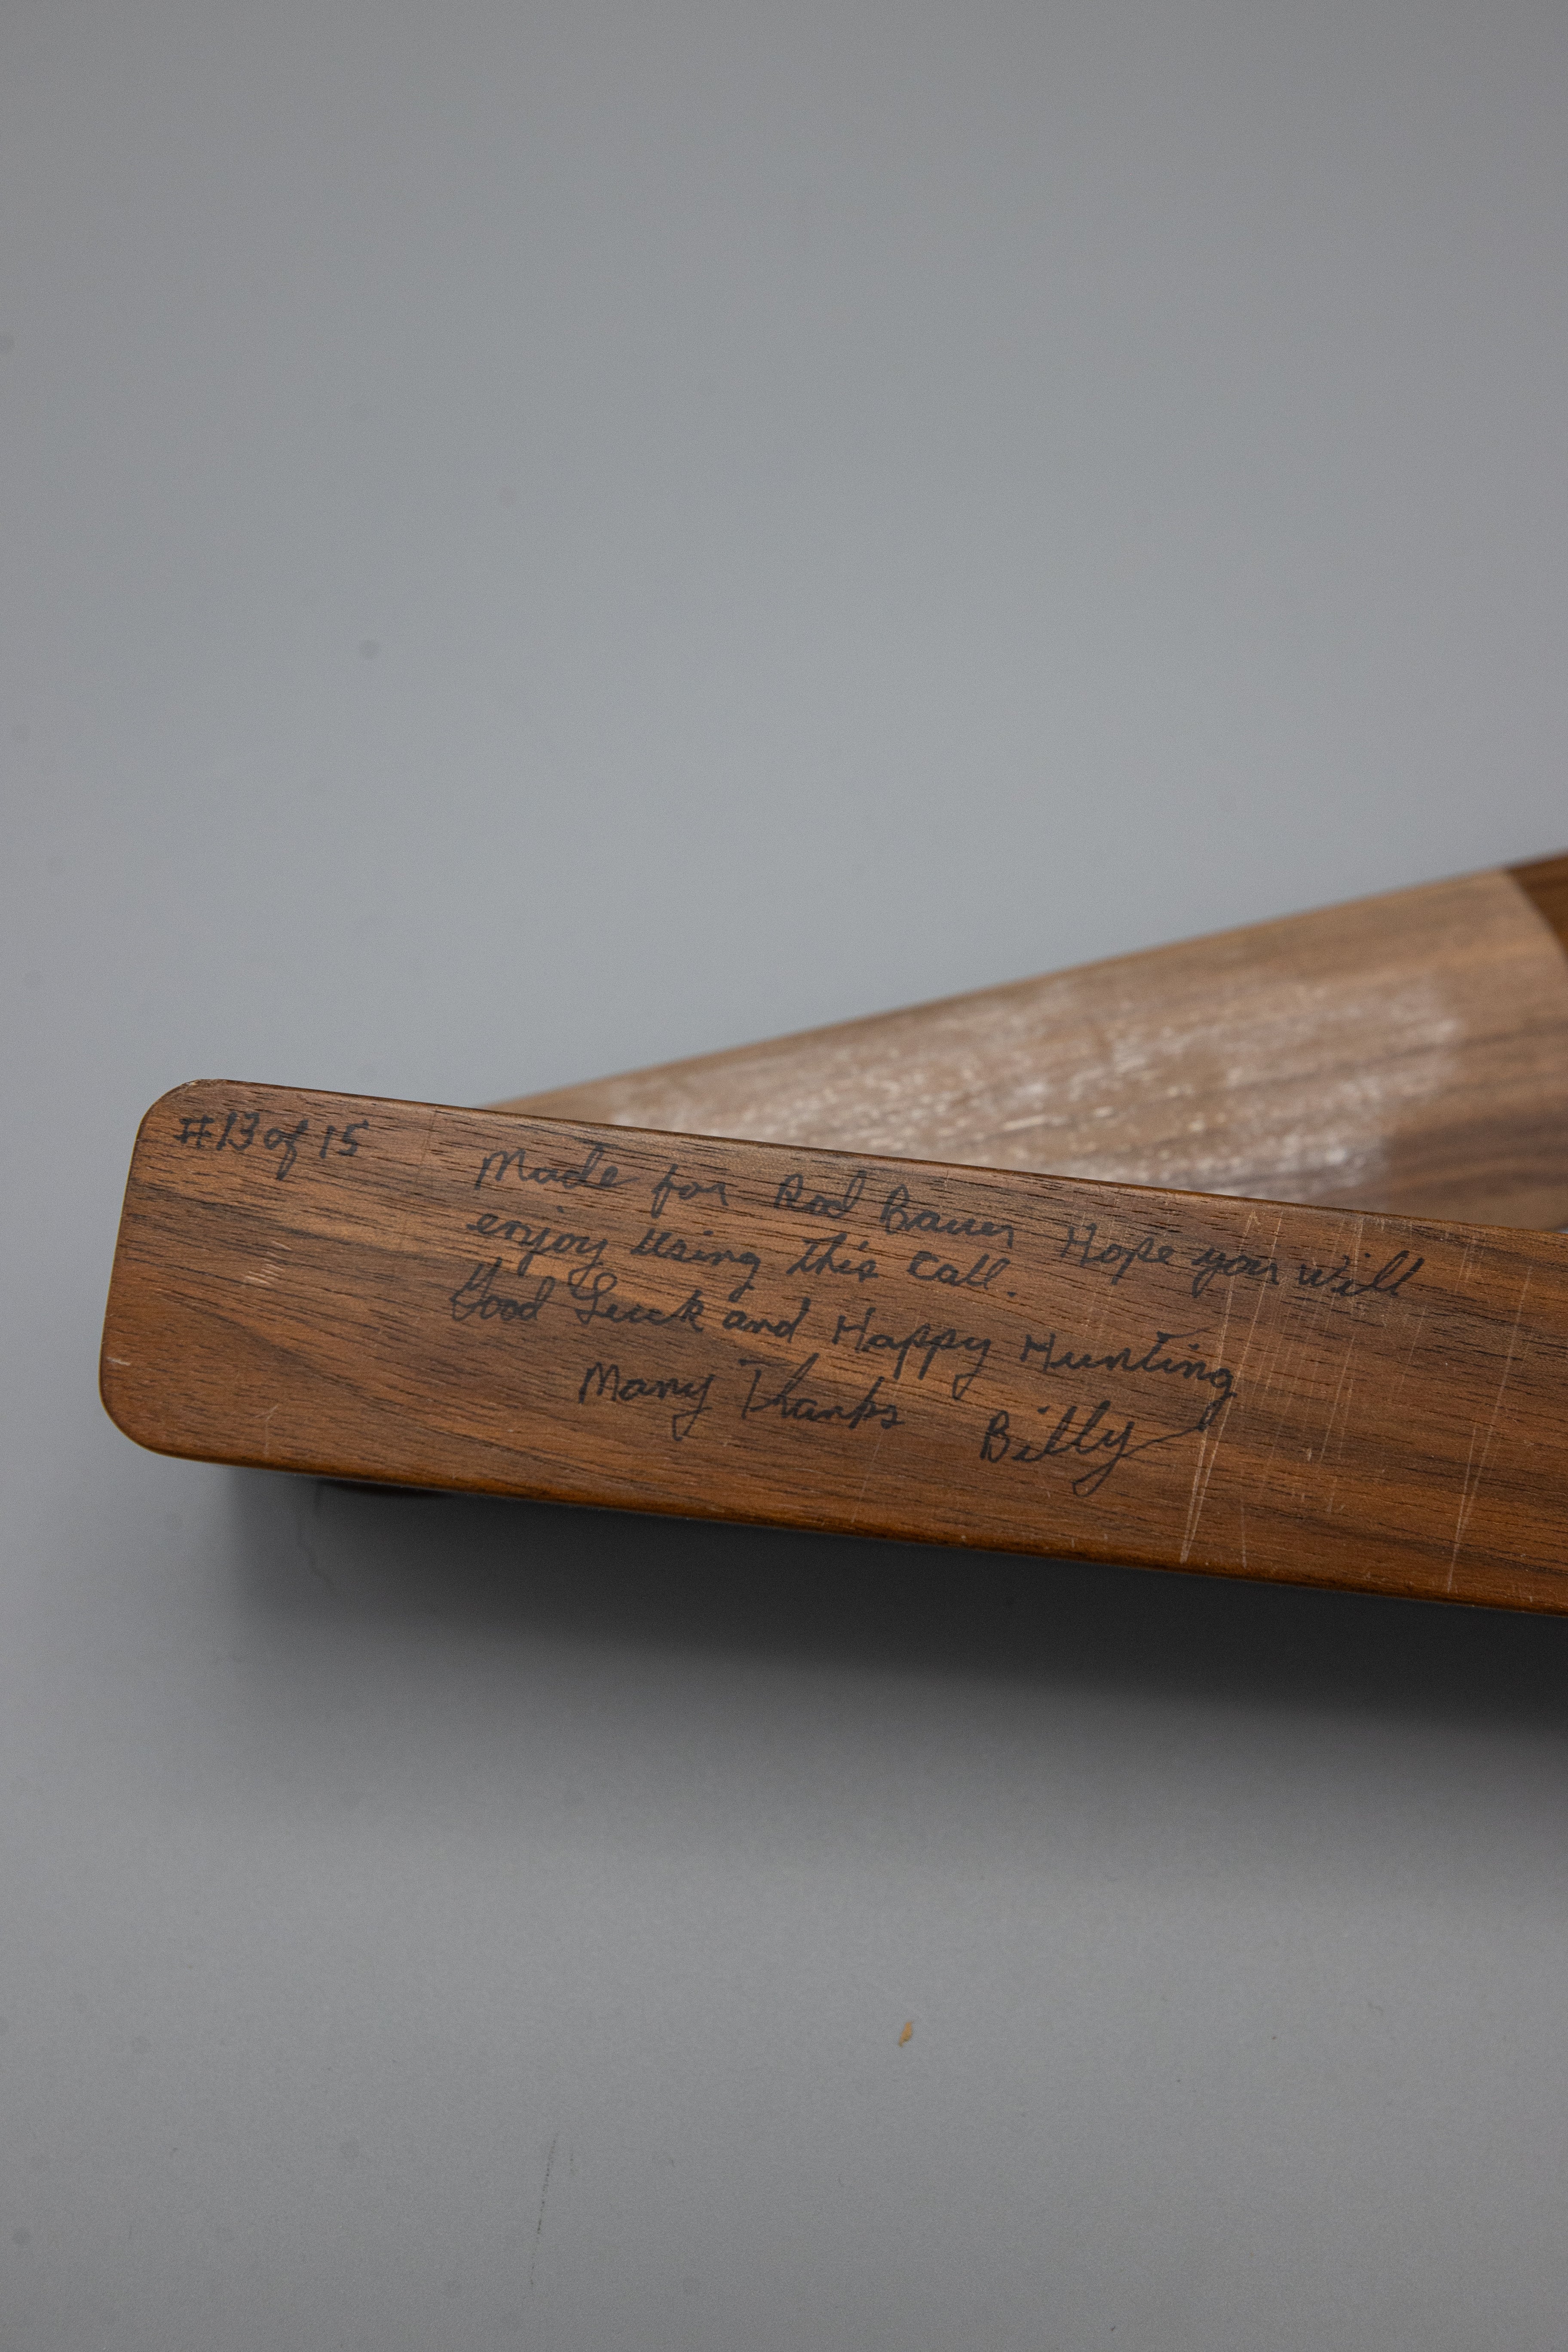 #13 of 15
Made for Rod Bauer Hope you will
enjoy using this call.
Good Luck and Happy Hunting
Many Thanks Billy